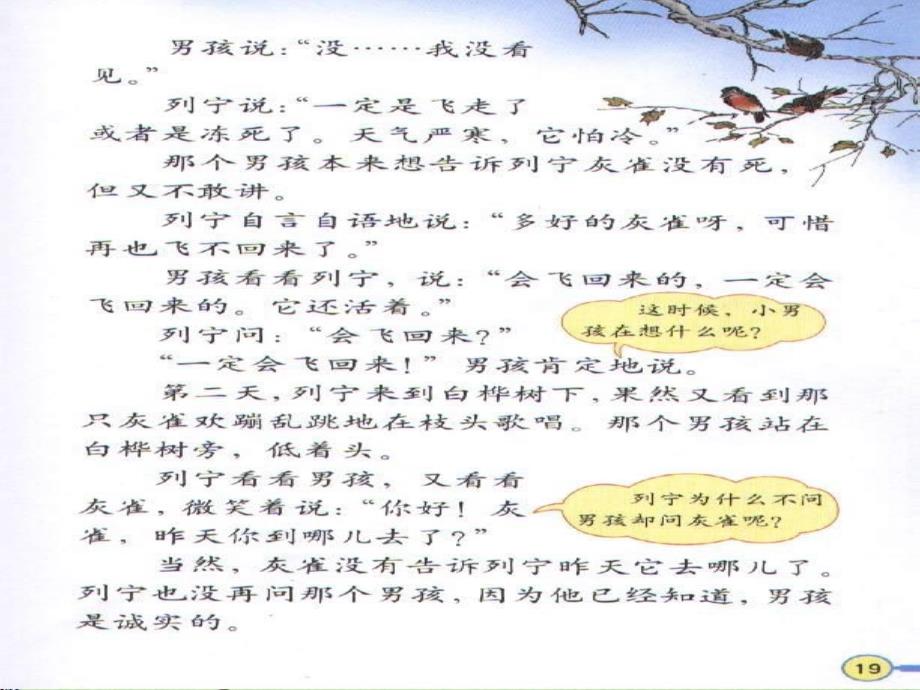 男孩说：“没……我没看
见。”
列宁说：“一定是飞走了
或者是冻死了。天气严寒，它怕冷。”
那个男孩本来想告诉列宁灰雀没有死，
但又不敢讲。
列宁自言自语地说：“多好的灰雀呀，可惜
再也飞不回来了。”
男孩看看列宁，说：“会飞回来的，一定会
飞回来的。它还活着。”
这时候，小男
孩在想什么呢？
列宁问：“会飞回来？”
“一定会飞回来！”男孩肯定地说。
第二天，列宁来到白桦树下，果然又看到那
只灰雀欢蹦乱跳地在枝头歌唱。那个男孩站在
白桦树旁，低着头。
列宁看看男孩，又看看
灰雀，微笑着说：“你好！灰
雀，昨天你到哪儿去了？”
列宁为什么不问
男孩却问灰雀呢？
当然，灰雀没有告诉列宁昨天它去哪儿了。
列宁也没再问那个男孩，因为他已经知道，男孩
是诚实的。
19